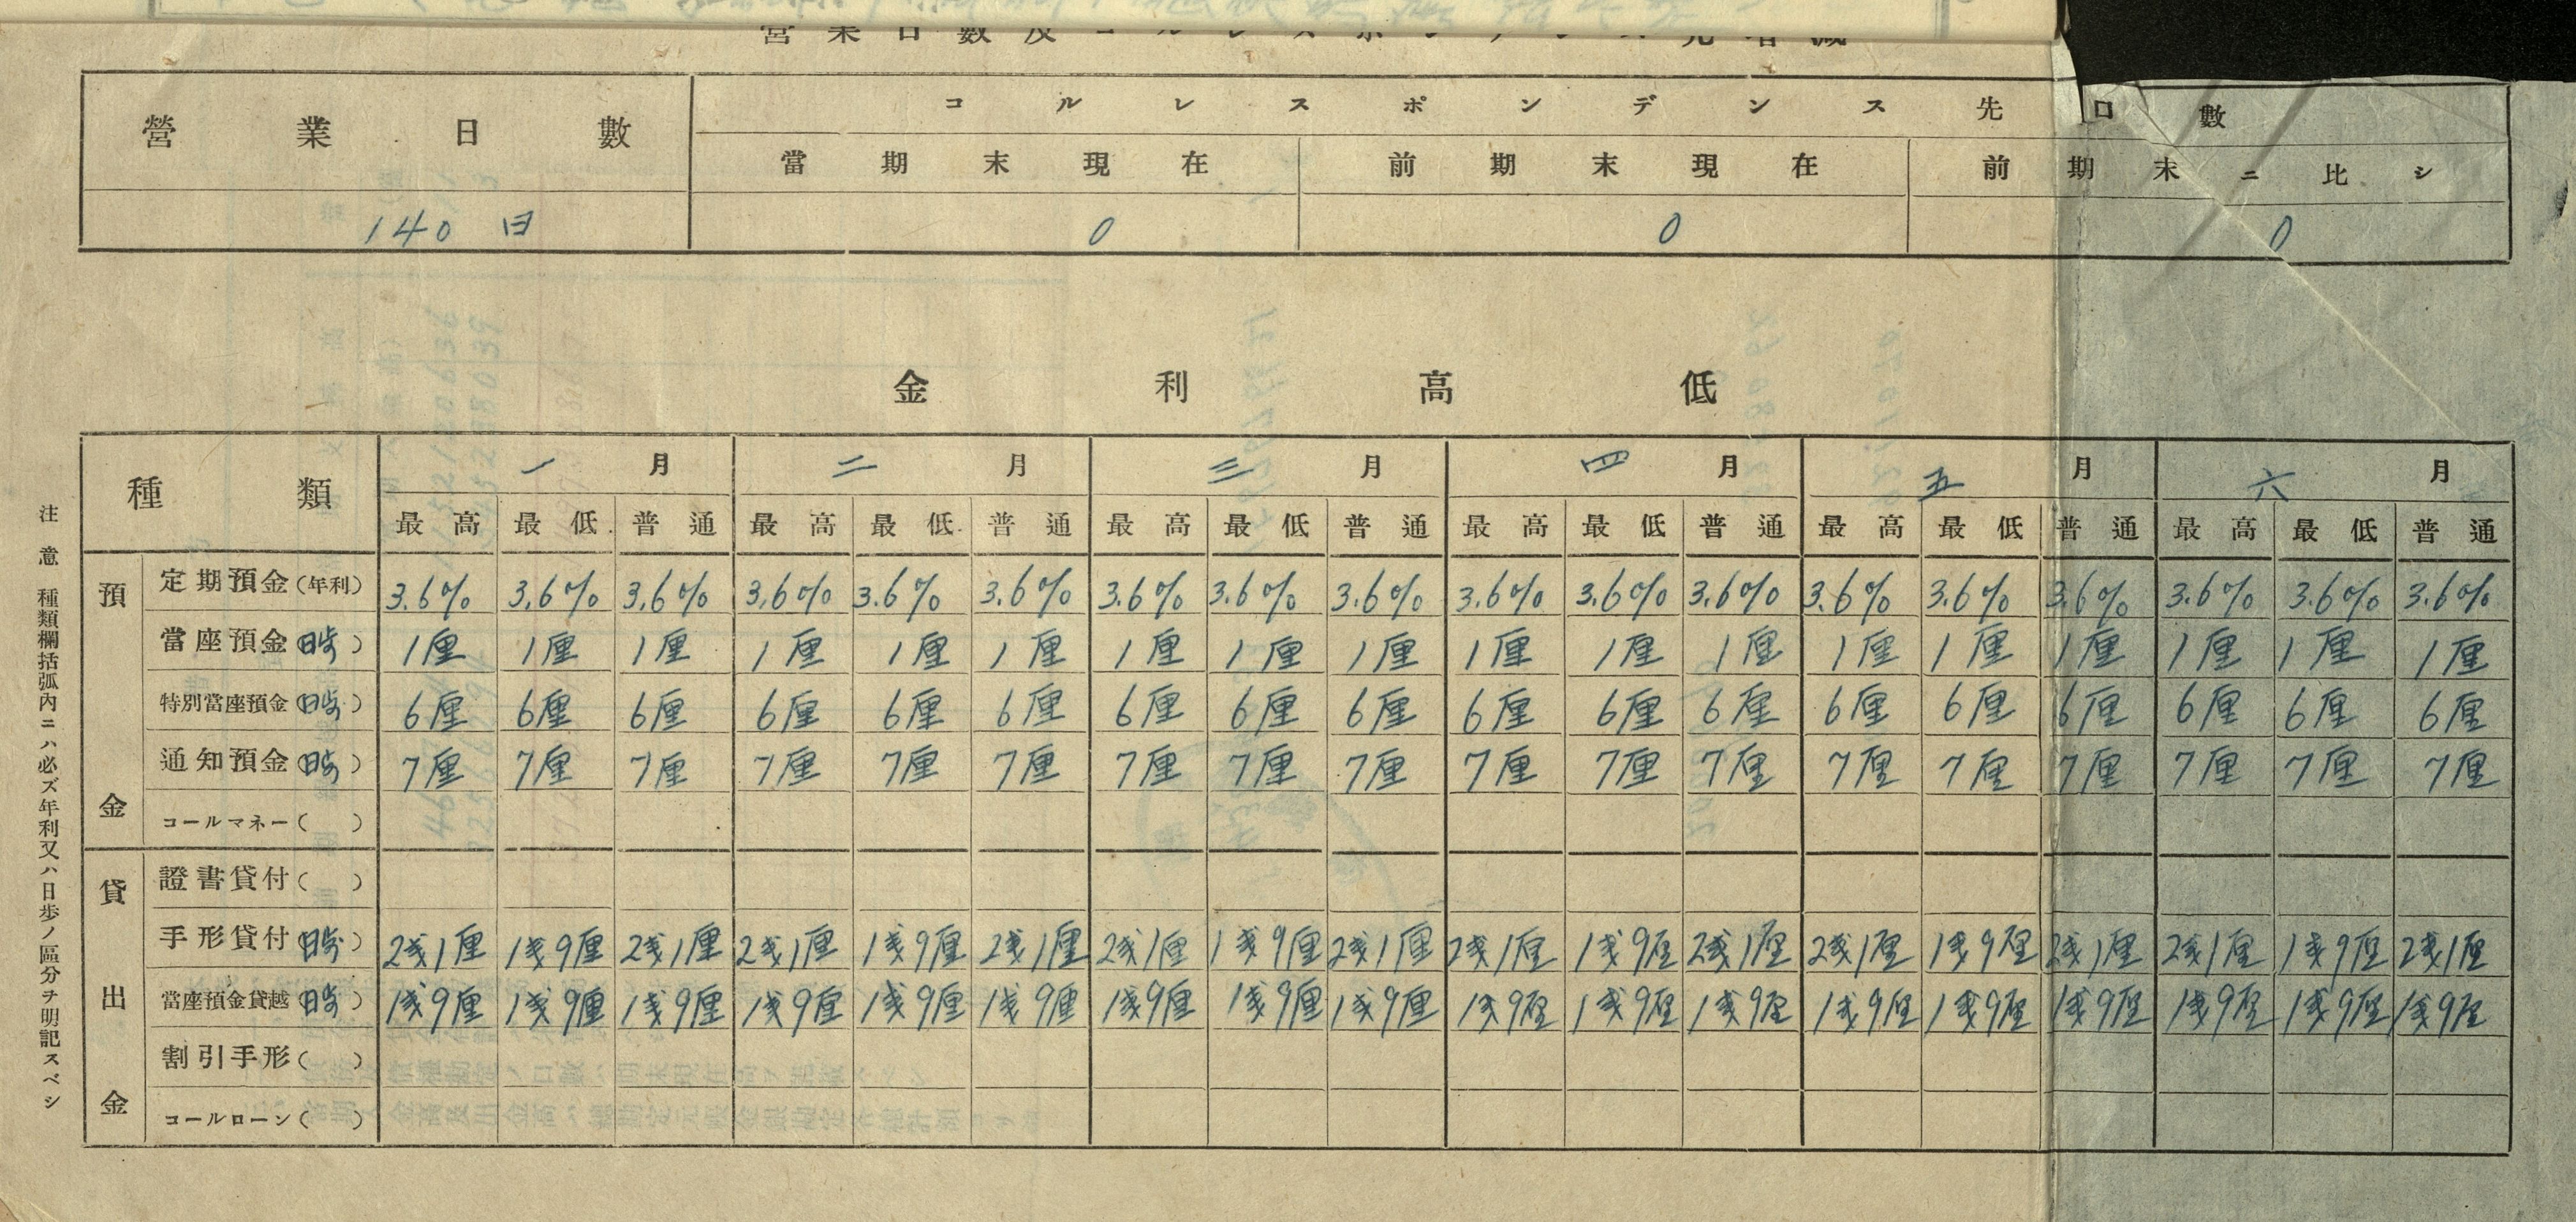 營業日數及コルレスポンデンス先増減
營業日數 コルレスポンデンス先口數
當期末現在 前期末現在 前期末ニ比シ
140日 0 0 0
金利高低
種類 一月 二月 三月 四月 五月 六月
最高 最低 普通 最高 最低 普通 最高 最低 普通 最高 最低 普通 最高 最低 普通 最高 最低 普通
預金
定期預金(年利) 3.6% 3.6% 3.6% 3.6% 3.6% 3.6% 3.6% 3.6% 3.6% 3.6% 3.6% 3.6% 3.6% 3.6% 3.6% 3.6% 3.6% 3.6%
當座預金(日歩) 1厘 1厘 1厘 1厘 1厘 1厘 1厘 1厘 1厘 1厘 1厘 1厘 1厘 1厘 1厘 1厘 1厘 1厘
特別當座預金(日歩) 6厘 6厘 6厘 6厘 6厘 6厘 6厘 6厘 6厘 6厘 6厘 6厘 6厘 6厘 6厘 6厘 6厘 6厘
通知預金(日歩) 7厘 7厘 7厘 7厘 7厘 7厘 7厘 7厘 7厘 7厘 7厘 7厘 7厘 7厘 7厘 7厘 7厘 7厘
コールマネー( )
貸出金
證書貸付( )
手形貸付(日歩) 2戋1厘 1戋9厘 2戋1厘 2戋1厘 1戋9厘 2戋1厘 2戋1厘 1戋9厘 2戋1厘 2戋1厘 1戋9厘 2戋1厘 2戋1厘 1戋9厘 2戋1厘 2戋1厘 1戋9厘 2戋1厘
當座預金貸越(日歩) 1戋9厘 1戋9厘 1戋9厘 1戋9厘 1戋9厘 1戋9厘 1戋9厘 1戋9厘 1戋9厘 1戋9厘 1戋9厘 1戋9厘 1戋9厘 1戋9厘 1戋9厘 1戋9厘 1戋9厘 1戋9厘
割引手形( )
コールローン( )
注意 種類欄括弧内ニハ必ズ年利又ハ日歩ノ區分ヲ明記スベシ